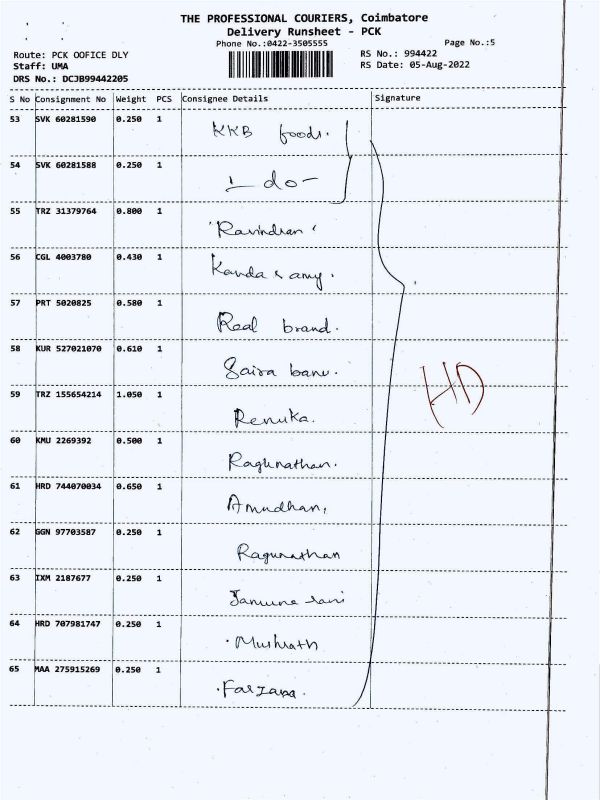 THE PROFESSIONAL COURIERS, Coimbatore
Delivery Runsheet - PCK
Phone No.:0422-3505555
Page No.:5
Route: PCK OOFICE DLY
RS No.: 994422
Staff: UMA
RS Date: 05-Aug-2022
DRS No.: DCJB99442205
S No Consignment No Weight PCS Consignee Details Signature
53 SVK 60281590 0.250 1 KKB foods.
54 SVK 60281588 0.250 1 - do -
55 TRZ 31379764 0.800 1 'Ravindran'
56 CGL 4003780 0.430 1 Kandasamy.
57 PRT 5020825 0.580 1 Real brand.
58 KUR 527021070 0.610 1 Saira banu.
HD
59 TRZ 155654214 1.050 1 Renuka.
60 KMU 2269392 0.500 1 Ragunathan.
61 HRD 744070034 0.650 1 Amudhan,
62 GGN 97703587 0.250 1 Ragunathan
63 IXM 2187677 0.250 1 Jamuna rani
64 HRD 707981747 0.250 1 Mushrath
65 MAA 275915269 0.250 1 Farzana.